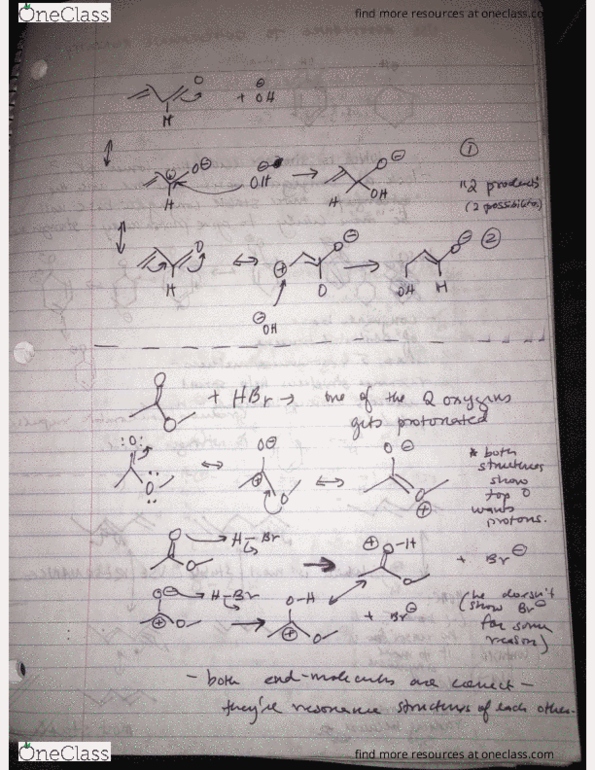 OneClass
find more resources at oneclass.com
O
⊖
+ OH
H
O⊖
OH⊖
→
O⊖
OH
H
H
①
"2 products"
(2 possibilities)
O
H
⊕
O⊖
O
→
O⊖
OH
H
②
⊖
OH
O
O
+ HBr → one of the 2 oxygens
gets protonated
:O:
O
O⊖
⊕
O
O⊖
O
⊕
* both
structures
show
top O
wants
protons.
O
O
H-Br
→
⊕ O-H
O
+ Br⊖
O⊖
⊕
O
H-Br
→
O-H
⊕
O
+ Br⊖
(he doesn't
show Br⊖
for some
reason)
- both end-molecules are correct -
they're resonance structures of each other.
OneClass
find more resources at oneclass.com